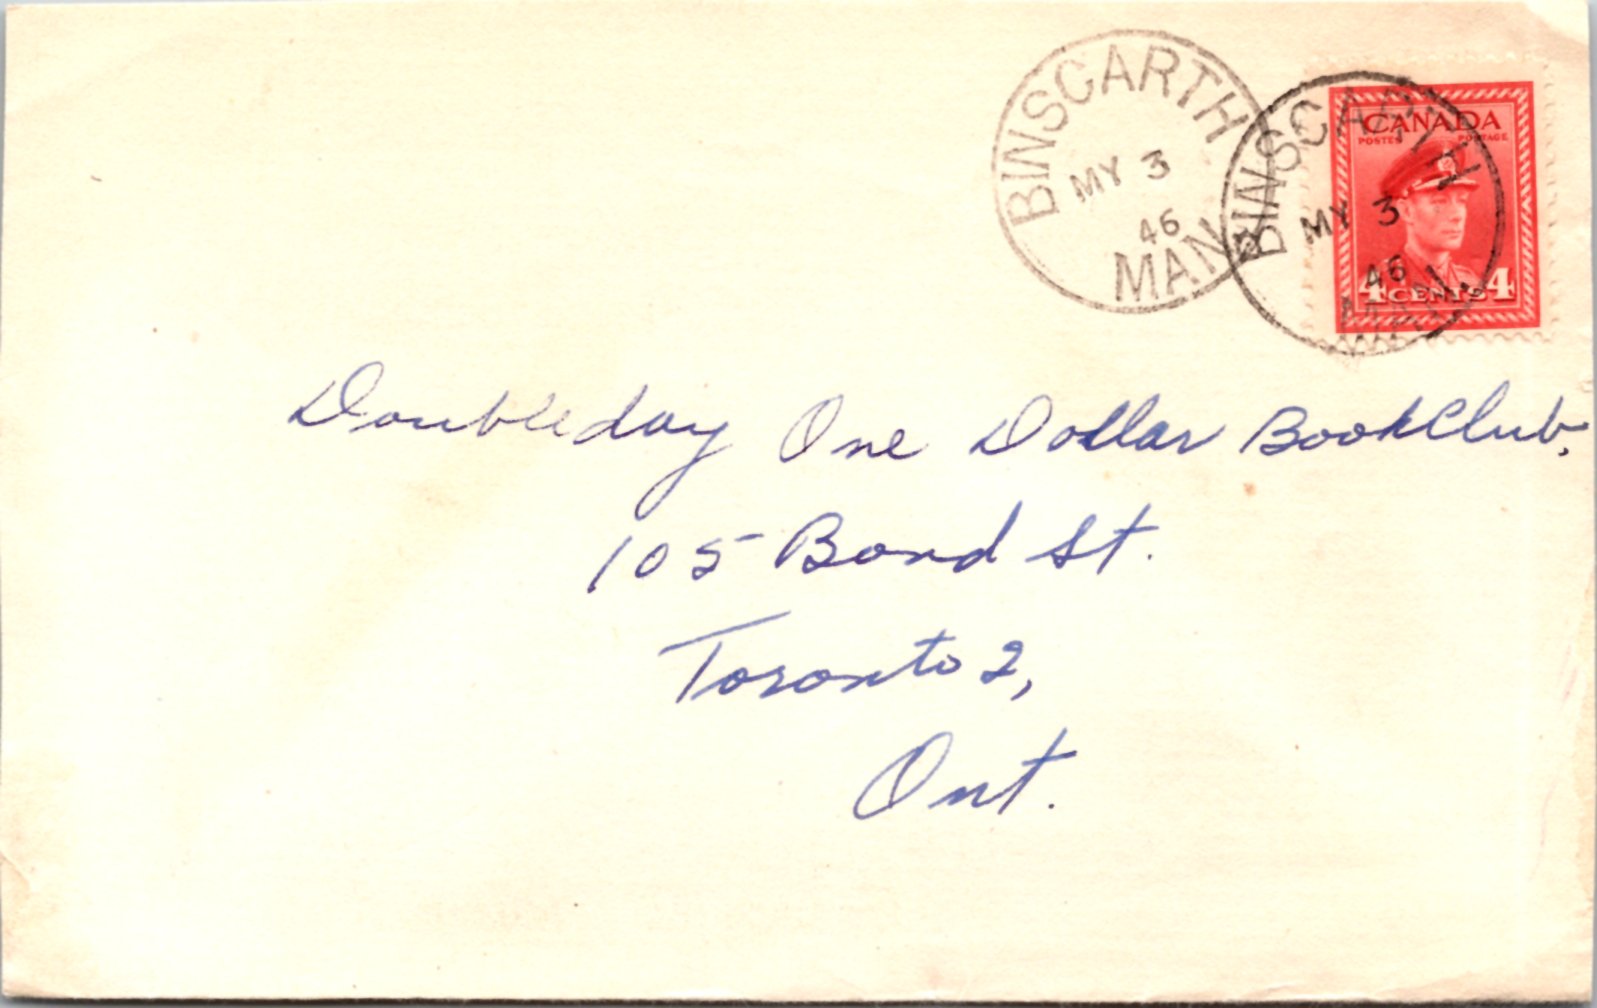 BINSCARTH
MY 3
46
MAN
BINSCARTH
MY 3
46
MAN
CANADA
POSTES POSTAGE
4 CENTS 4
Doubleday One Dollar Book Club,
105 Bond St.
Toronto 2,
Ont.